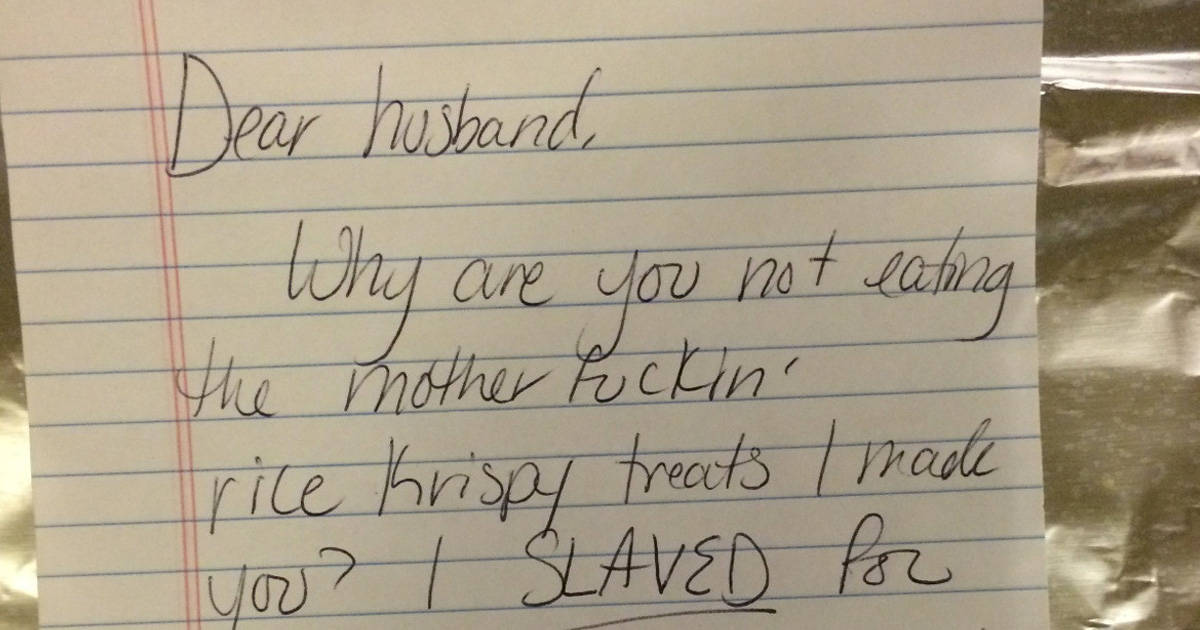 Dear husband,
Why are you not eating
the mother fuckin'
rice Krispy treats I made
you? I SLAVED for